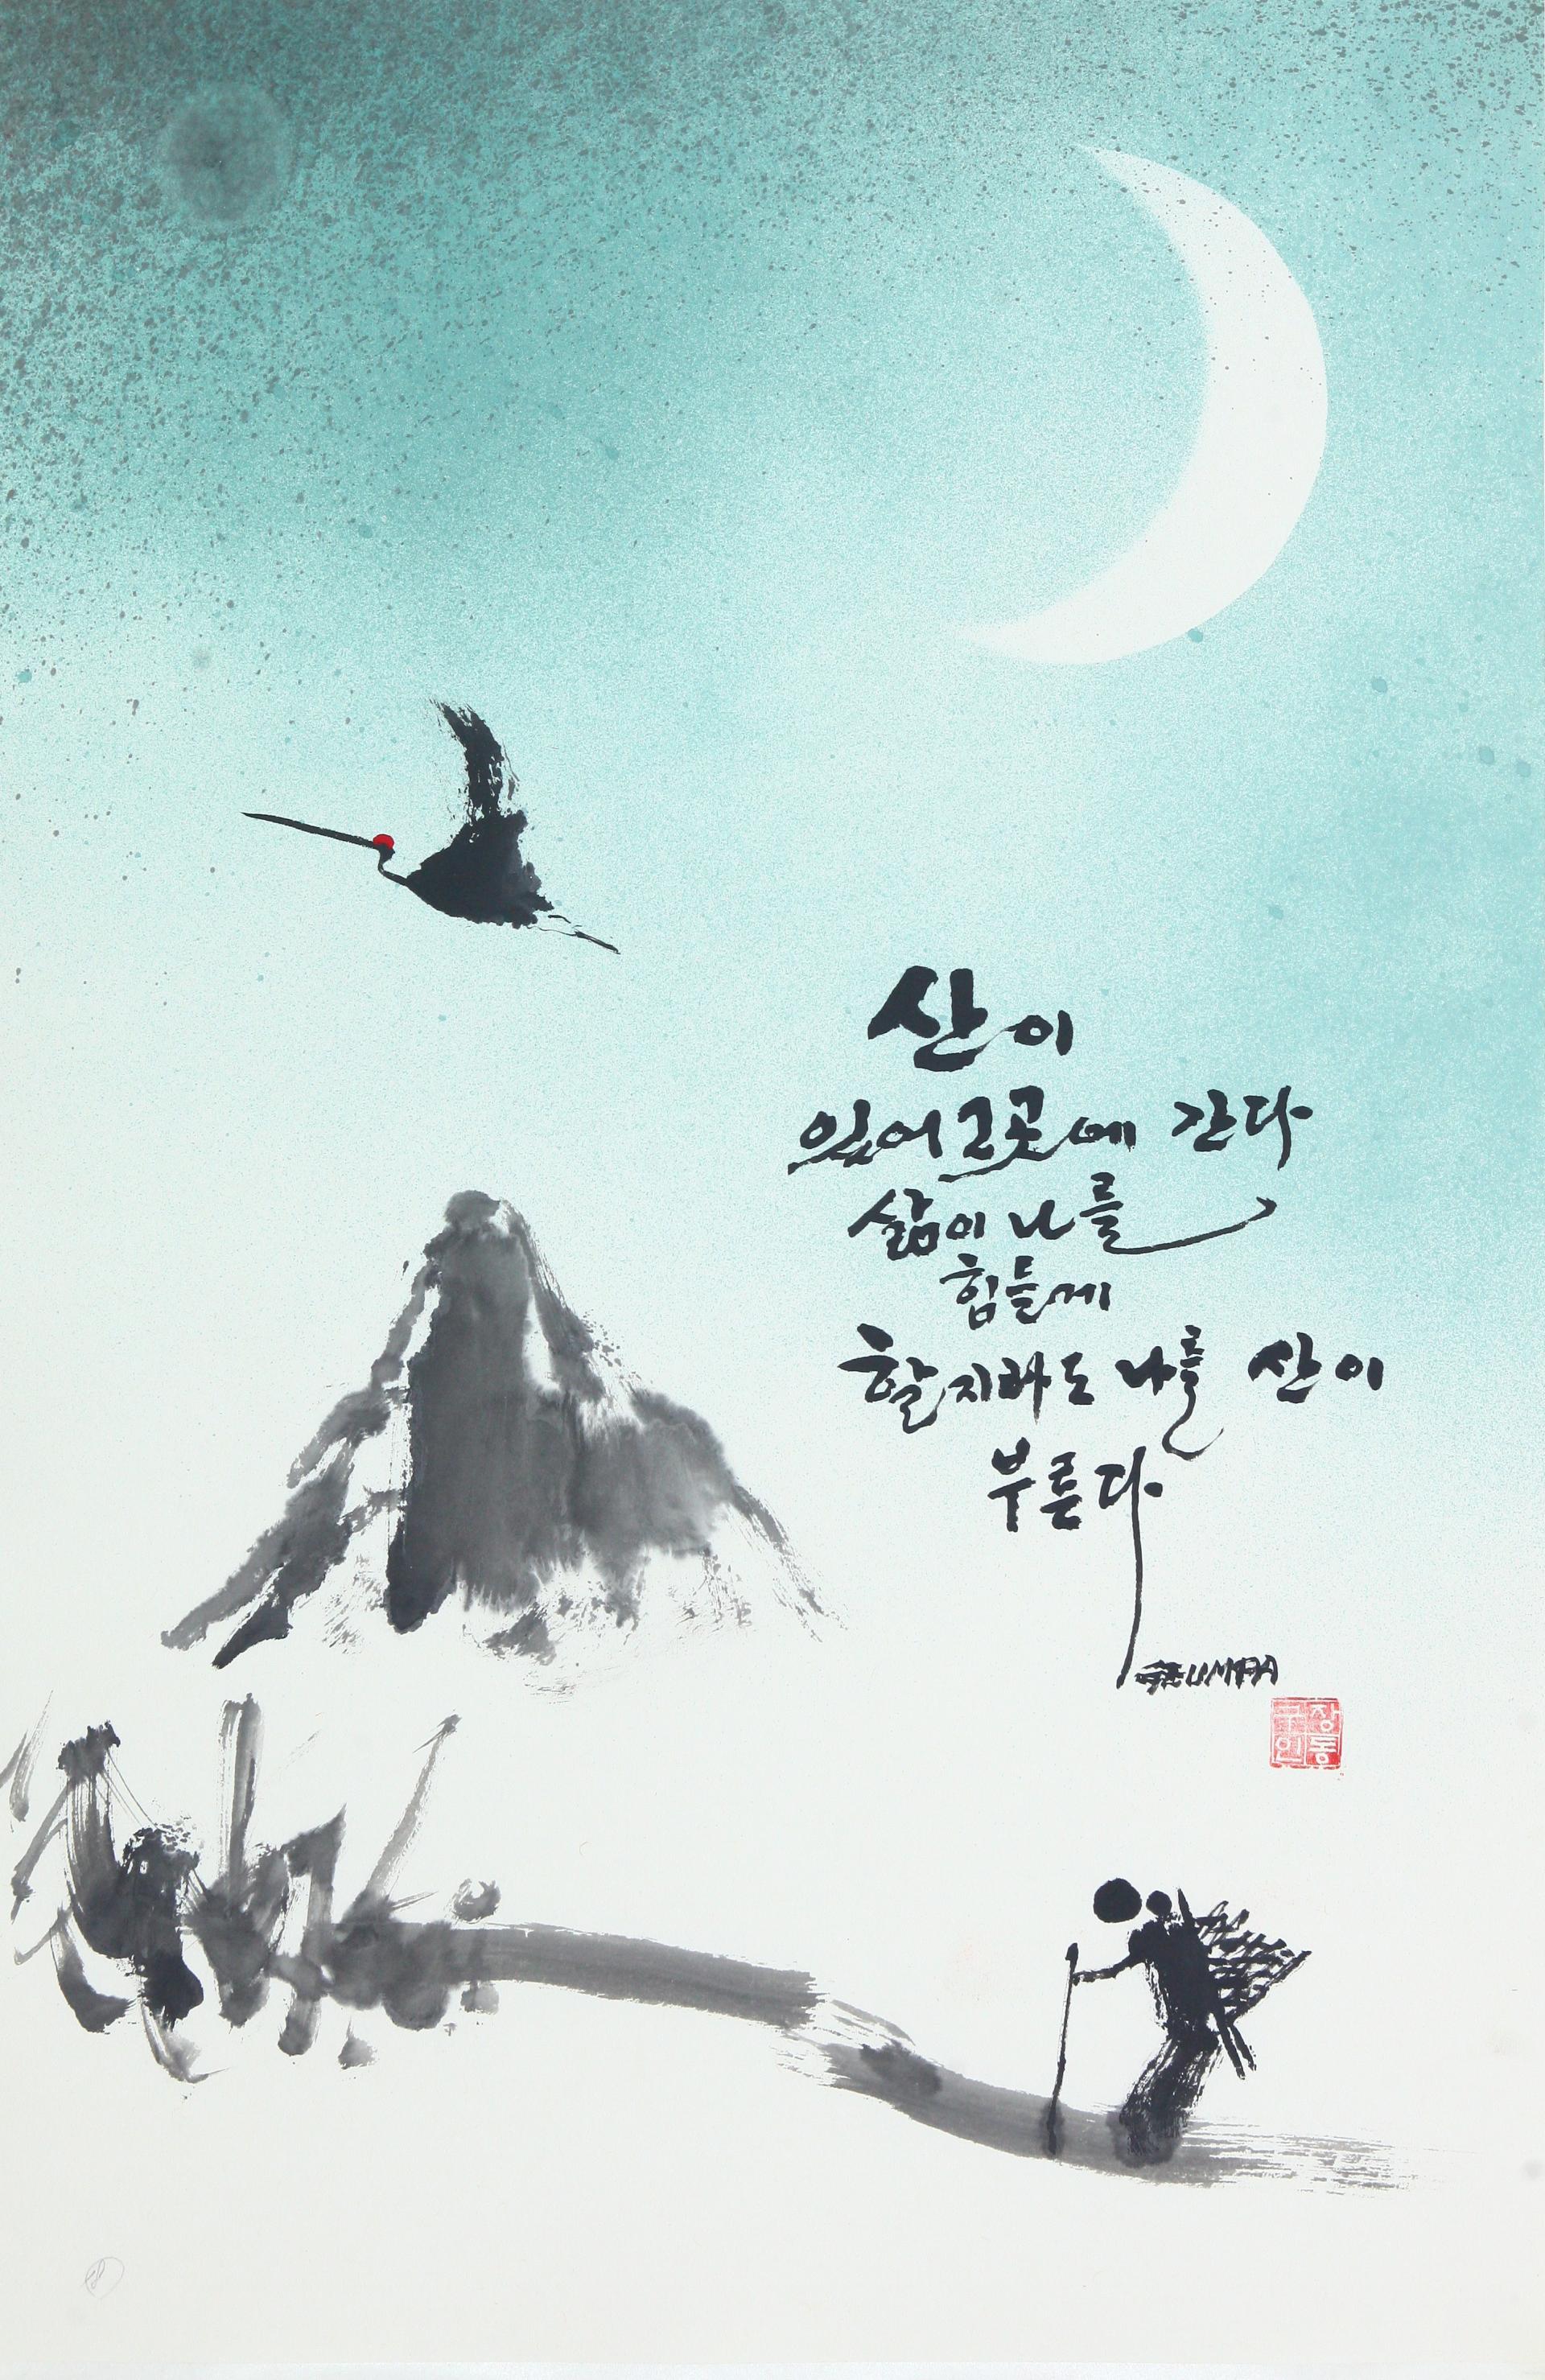 산이
있어 그곳에 간다
삶이 나를
힘들게
할지라도 나를 산이
부른다
장동
국인